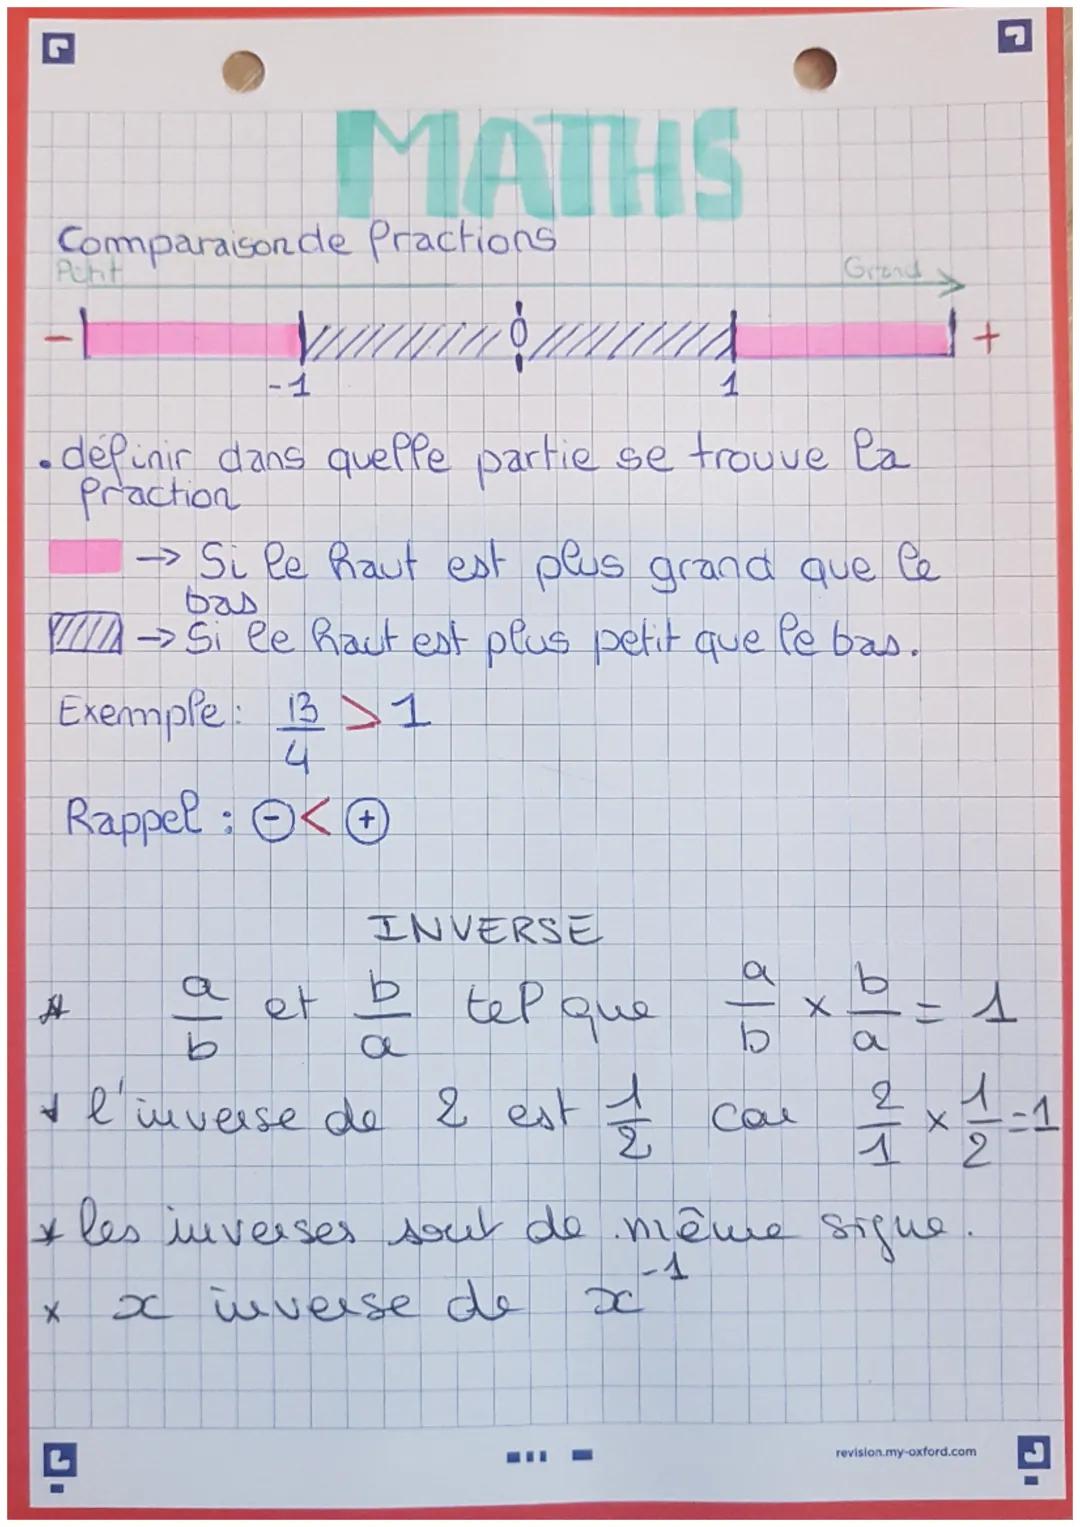 MATHS
Comparaison de fractions
Petit Grand
- 0 +
-1 1
• définir dans quelle partie se trouve la
fraction
→ Si le haut est plus grand que le
bas
→ Si le haut est plus petit que le bas.
Exemple : 13/4 > 1
Rappel : ⊖ < ⊕
INVERSE
* a/b et b/a tel que a/b × b/a = 1
* l'inverse de 2 est 1/2 car 2/1 × 1/2 = 1
* les inverses sont de même signe.
× x inverse de x⁻¹
revision.my-oxford.com